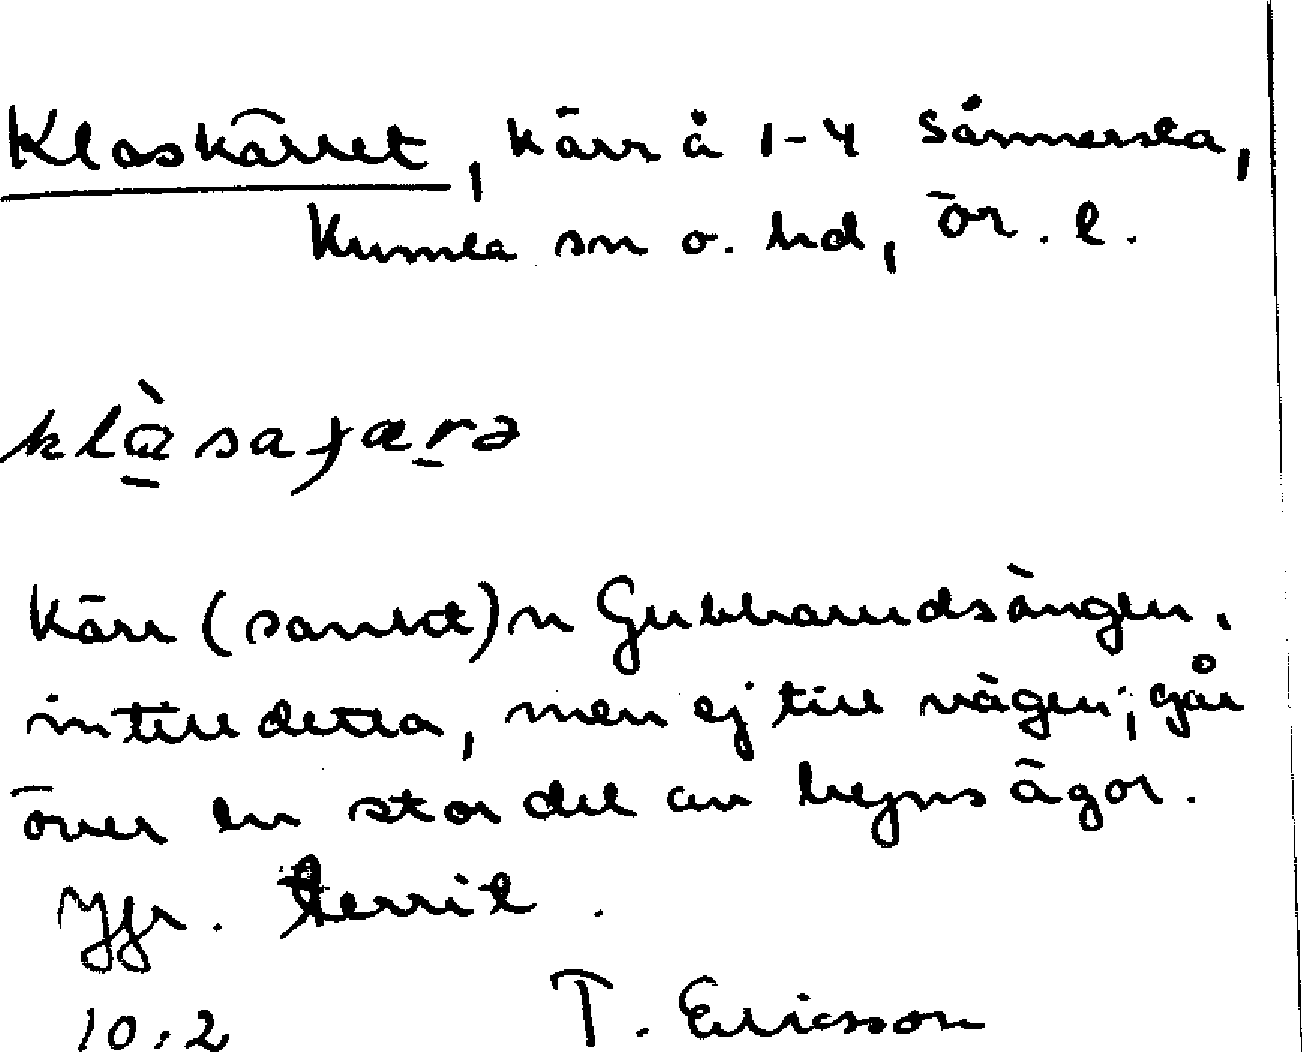 Klaskärret, kärr å 1-4 Sånnersta,
Kumla sn o. hd, Ör. l.
klàsaȷæra
Kärr (sankt) n
intill detta, men ej till vägen; går
över en stor del av byns ägor.
Jfr.
10.2 T. Ericsson